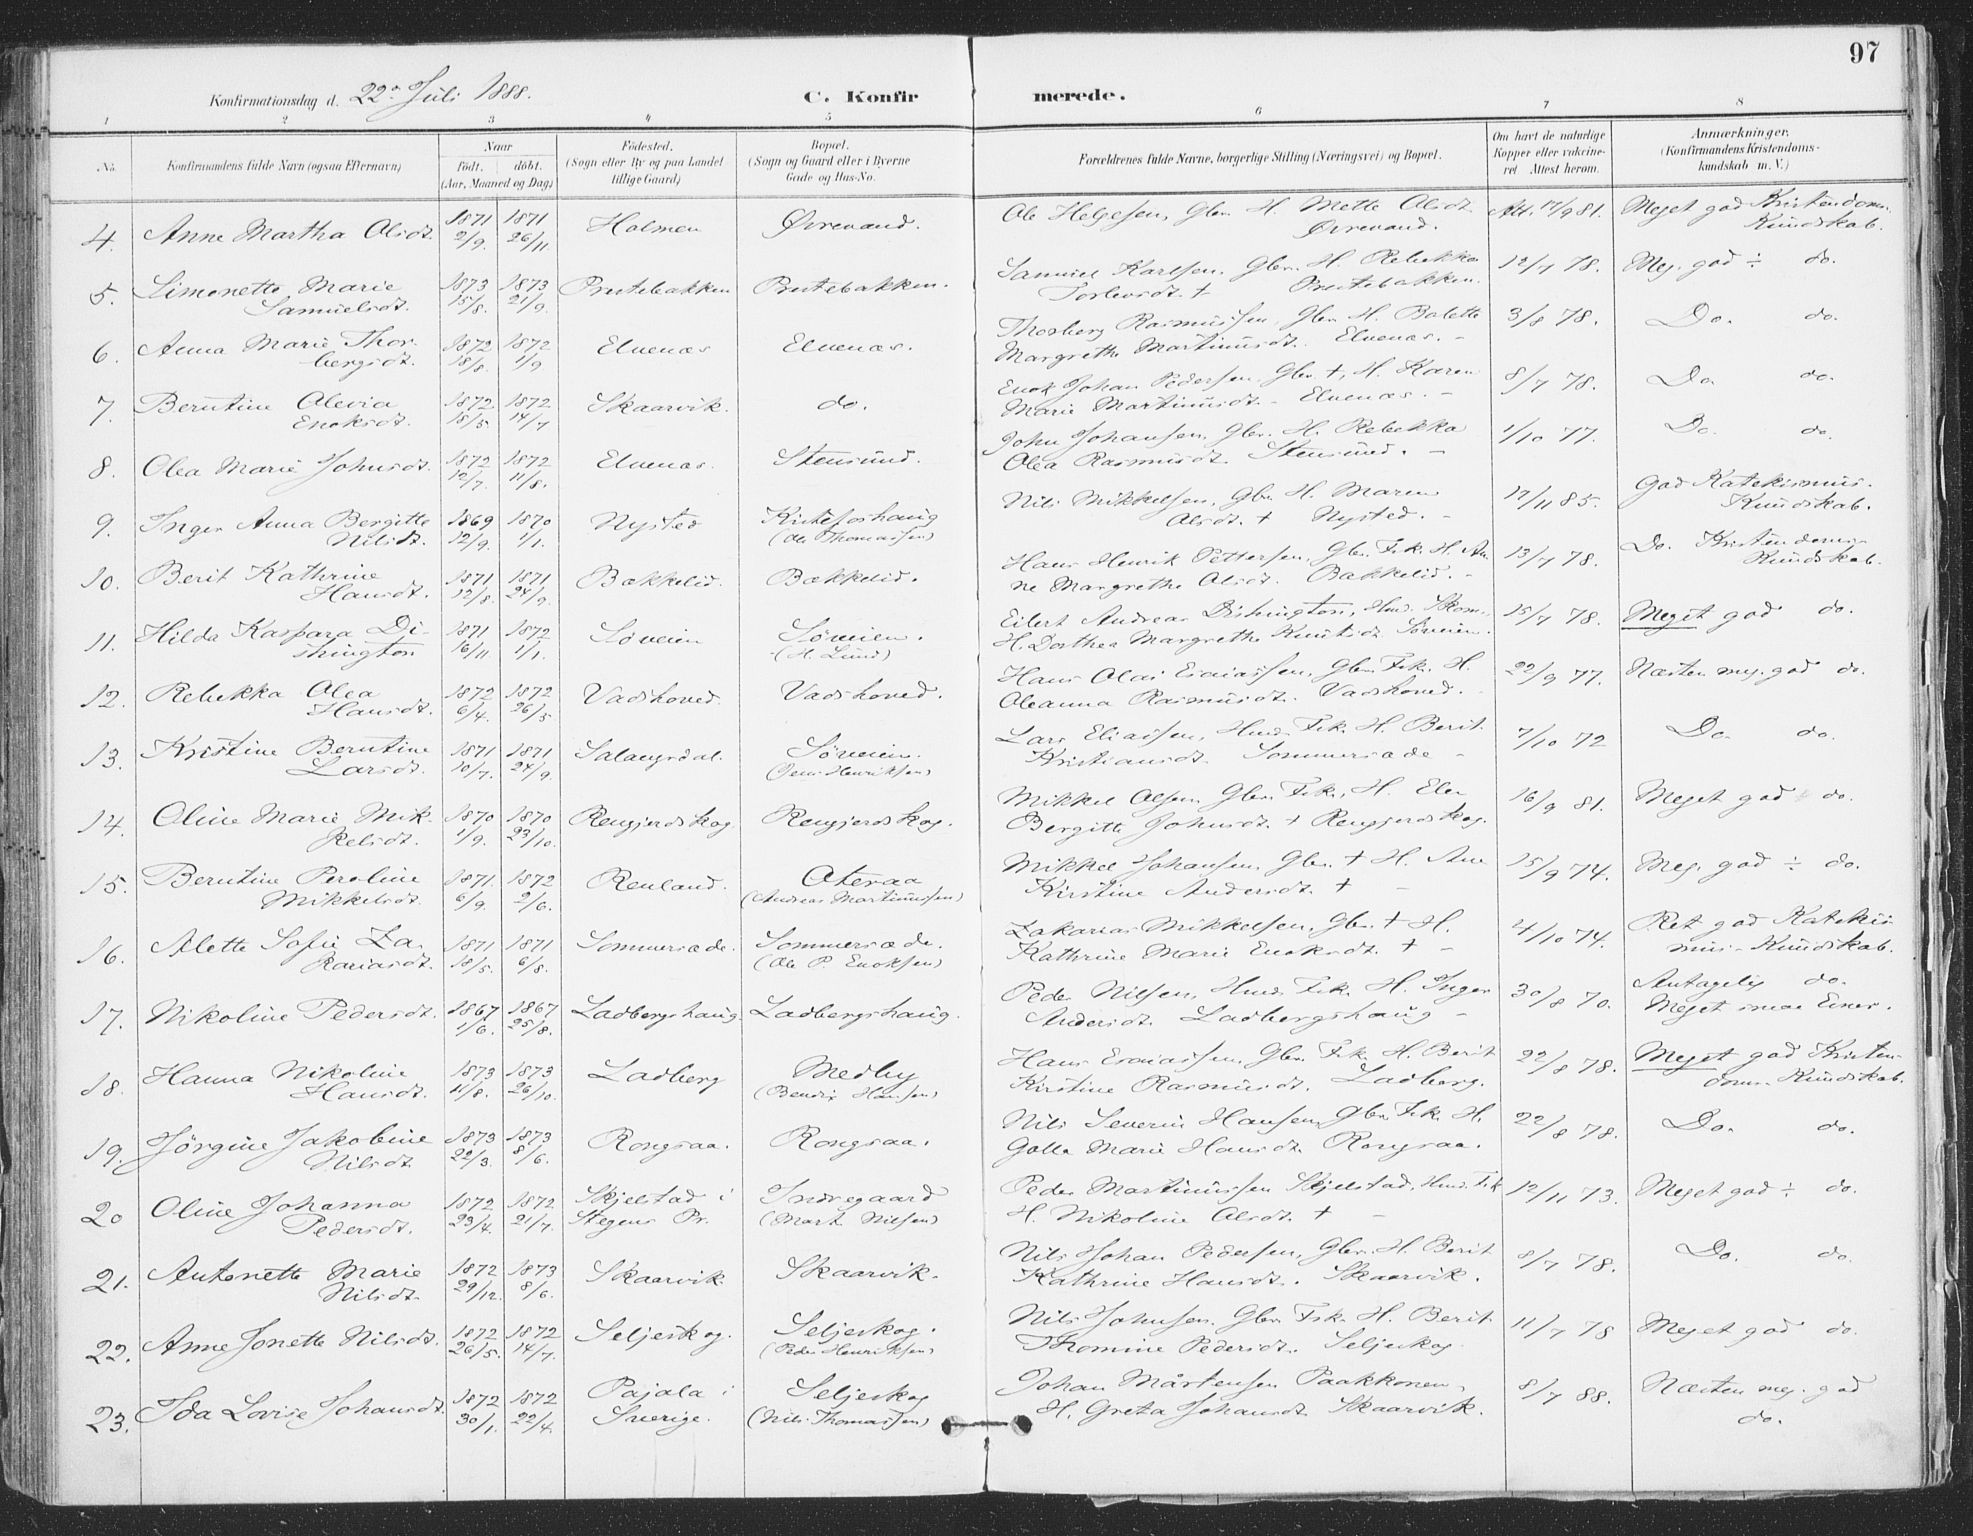 97
Konfirmationsdag d. 22de Juli 1888. C. Konfirmerede.
1 2 3 4 5 6 7 8
No. Konfirmandens fulde Navn (ogsaa Efternavn) Naar födt. döbt. (Aar, Maaned og Dag) Födested. (Sogn eller By og paa Landet tillige Gaard) Bopæl. (Sogn og Gaard eller i Byerne Gade og Hus-No. Forældrenes fulde Navne, borgerlige Stilling (Næringsvei) og Bopæl. Om havt de naturlige Kopper eller vakcineret. Attest herom. Anmærkninger. (Konfirmandens Kristendomskundskab m. V.)
4. Anne Martha Olsdt. 1871 2/9. 1871 26/11. Holmen Øvrevand. Ole Helgesen, Gbr. H. Mette Olsdt. Øvrevand. Att. 17/9 81. Meget god Kristendoms Kundskab.
5. Simonette Marie Samuelsdt. 1873 15/8. 1873 21/9. Prestebakken Prestebakken. Samuel Karlsen, Gbr. H. Rebekka Torlevsdt. + Prestebakken. 12/7 78. Meg. god ÷ do.
6. Anna Marie Thorbergsdt. 1872 18/8. 1872 1/9 Elvenæs Elvenæs. Thorberg Rasmussen, Gbr. H. Bolette Margrethe Martinusdt. Elvenæs. - 3/8 78. Do. do.
7. Berntine Olevia Enoksdt. 1872 18/5. 1872 14/7 Skaarvik. do. Enok Johan Pedersen, Gbr. +, H. Karen Marie Martinusdt. - Elvenæs. - 8/7 78. Do do.
8. Olea Marie Johnsdt. 1872 12/7. 1872 11/8. Elvenæs. Stensund. John Johansen, Gbr. H. Rebekka Olea Rasmusdt. Stensund. - 1/10 77. Do. do.
9. Inger Anna Bergitte Nilsdt. 1869 12/9. 1870 1/1. Nysted (Ole Thomassen) Nils Mikkelsen, Gbr. H. Maren Olsdt. + Nysted. - 17/11 85. God Katekismus-Kundskab.
10. Berit Kathrine Hansdt. 1871 12/8. 1871 24/9. Bækkelid. Bækkelid. Hans Henrik Pettersen, Gbr. Fsk. H. Anne Margrethe Olsdt. Bakkelid. - 13/7 78. Do. Kristendoms Kundskab.
11. Hilda Kaspara Dishington 1871 16/11 1872 1/1. Søveien Søveien. (H. Lund) Eilert Andreas Dishington, Hmd. Skom. H. Dorthea Margrethe Knutsdt. Søveien. 15/7 78. Meget god do.
12. Rebekka Olea Hansdt. 1872 6/4. 1872 26/5 Vadshoved. Vadshoved. Hans Olai Esaiassen, Gbr. Fsk. H. Oleanna Rasmusdt. Vadshoved. - 22/9 77. Næsten meg. god do.
13. Kristine Berntine Larsdt. 1871 10/7. 1871 24/9. Salangsdal. Søveien. (Jens Henriksen) Lars Eliassen, Hmd. Fsk. H. Berit Kristiansdt. Sommersæde - 7/10 72 Do. do.
14. Oline Marie Mikkelsdt. 1870 1/9. 1870 23/10. Rengjerdskog Rengjerdskog. Mikkel Olsen, Gbr. Fsk., H. Elen Bergitte Johnsdt. + Rengjerdskog. 16/9 81. Meget god ÷ do.
15. Berntine Peroline Mikkelsdt. 1871. 6/9. 1872 2/6. Renland. Oteraa (Andreas Martinussen) Mikkel Johansen, Gbr. + H. Ane Kirstine Andersdt. + - 15/9 74. Meg. god ÷ do.
16. Alette Sofie Zakariasdt. 1871 18/5. 1871 6/8. Sommersæde. Sommersæde. (Ole P. Enoksen) Zakarias Mikkelsen, Gbr. + H. Kathrine Marie Enoksdt. + - 4/10 74. Ret god Katekismus-Kundskab.
17. Nikoline Pedersdt. 1867 1/6. 1867 25/8. Ladbergshaug. Ladbergshaug. Peder Nilsen, Hmd. Fsk. H. Inger Andersdt. Ladbergshaug - 30/8 70. Antagelig do. Meget smaa Evner.
18. Hanna Nikoline Hansdt. 1873 11/8. 1873 26/10. Ladberg Medby (Bendix Hansen) Hans Esaiassen, Gbr. Fsk. H. Berit Kirstine Rasmusdt. Ladberg. 22/8 78. Meget god Kristendoms-Kundskab.
19. Jørgine Jakobine Nilsdt 1873 22/3. 1873 8/6. Rongsaa. Rongsaa. Nils Severin Hansen, Gbr. Fsk. H. Golla Marie Hansdt. Rongsaa. 22/8 78. Do. do.
20 Oline Johanna Pedersdt. 1872 23/4. 1872 21/7. Skjelstad i Stegens Pr. Indregaard (Mart. Nilsen) Peder Martinussen Skjelstad, Hmd. Fsk H. Nikoline Olsdt. + - 12/11 73. Meget god ÷ do.
21. Antonette Marie Nilsdt. 1872 29/12. 1873 8/6. Skaarvik Skaarvik. Nils Johan Pedersen, Gbr. H. Berit Kathrine Hansdt. Skaarvik. 8/7 78. Do. do.
22. Anne Jonette Nilsdt. 1872 26/5. 1872 14/7. Seljeskog. Seljeskog. (Peder Henriksen) Nils Johnsen, Gbr. Fsk. H. Berit Thomine Pedersdt. Seljeskog 11/7 78 Meget god do.
23. Ida Lovise Johansdt. 1872 30/1. 1872 22/4. Pajala i Sverige. Seljeskog (Nils Thomassen) Johan Mårtensen Paakkonen, H. Greta Johansdt Skaarvik. 8/7 88. Næsten meg. god do.